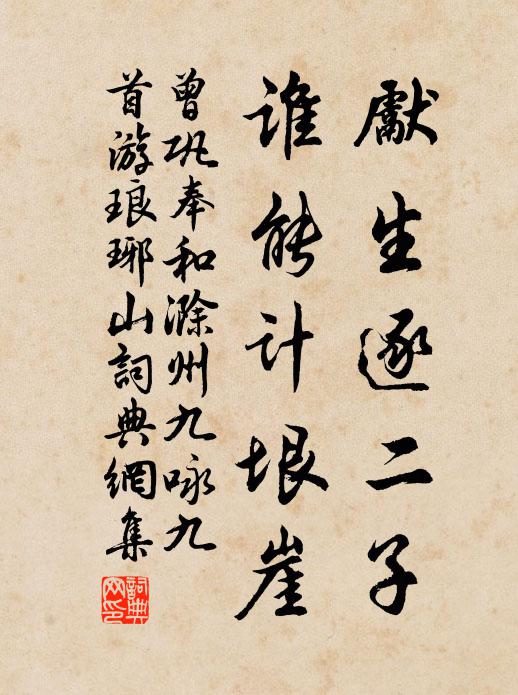 獻生逐二子
誰能計垠崖
曾巩奉和滁州九咏九
首游琅琊山詞典網集
詞典网印